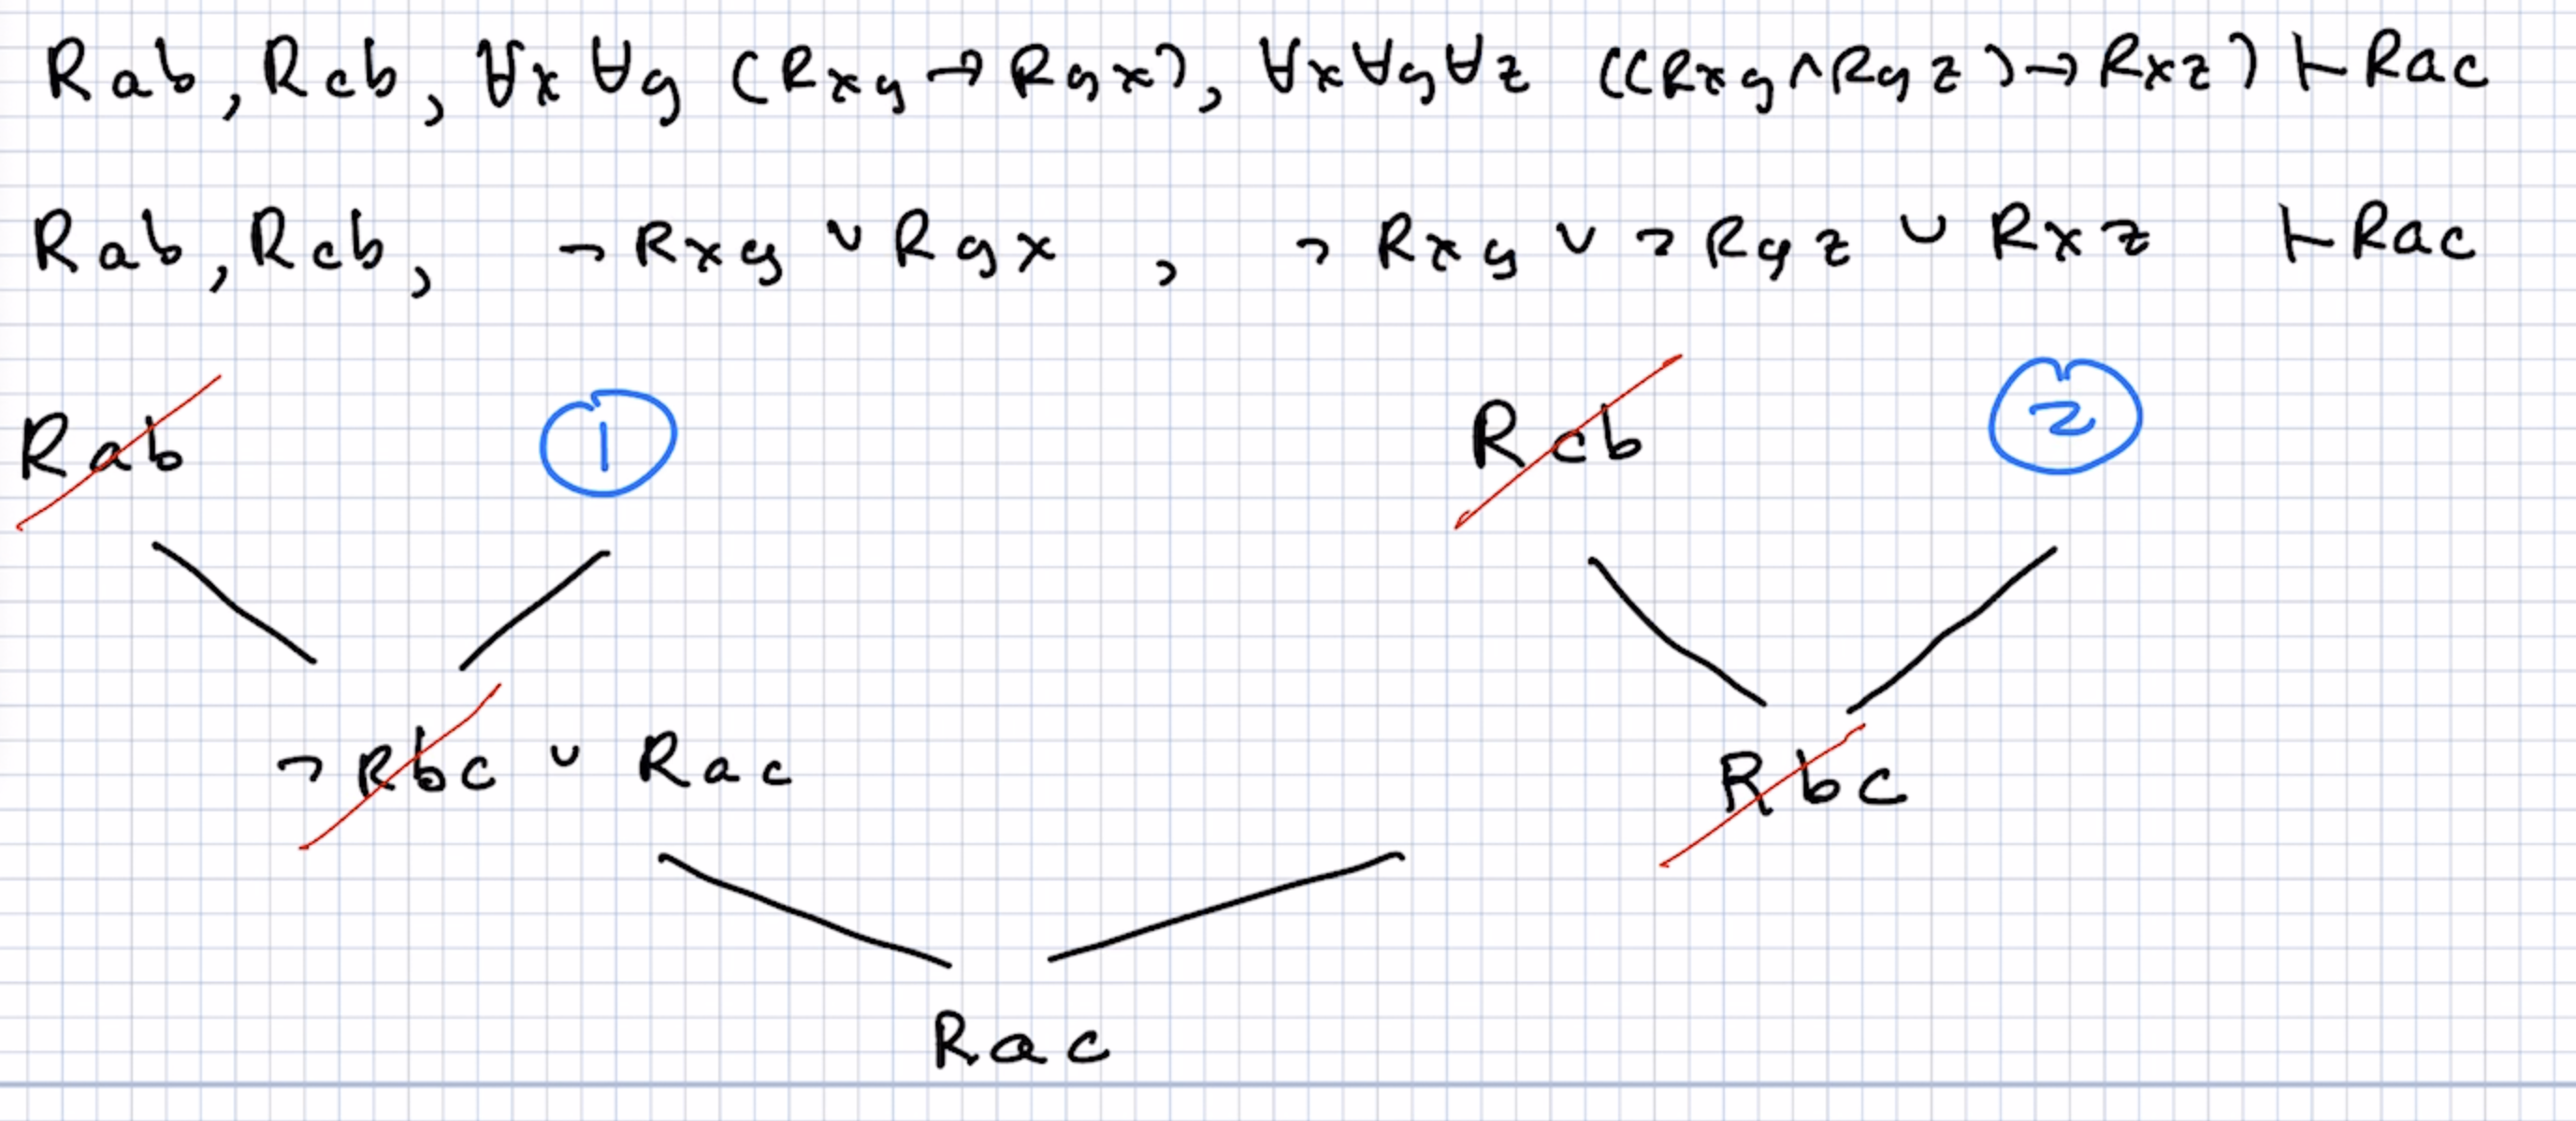 Rab, Rcb, ∀x∀y (Rxy → Ryx), ∀x∀y∀z ((Rxy ∧ Ryz) → Rxz) ⊢ Rac
Rab, Rcb, ¬Rxy ∨ Ryx, ¬Rxy ∨ ¬Ryz ∨ Rxz ⊢ Rac
Rab 1 Rcb 2
¬Rbc ∨ Rac Rbc
Rac